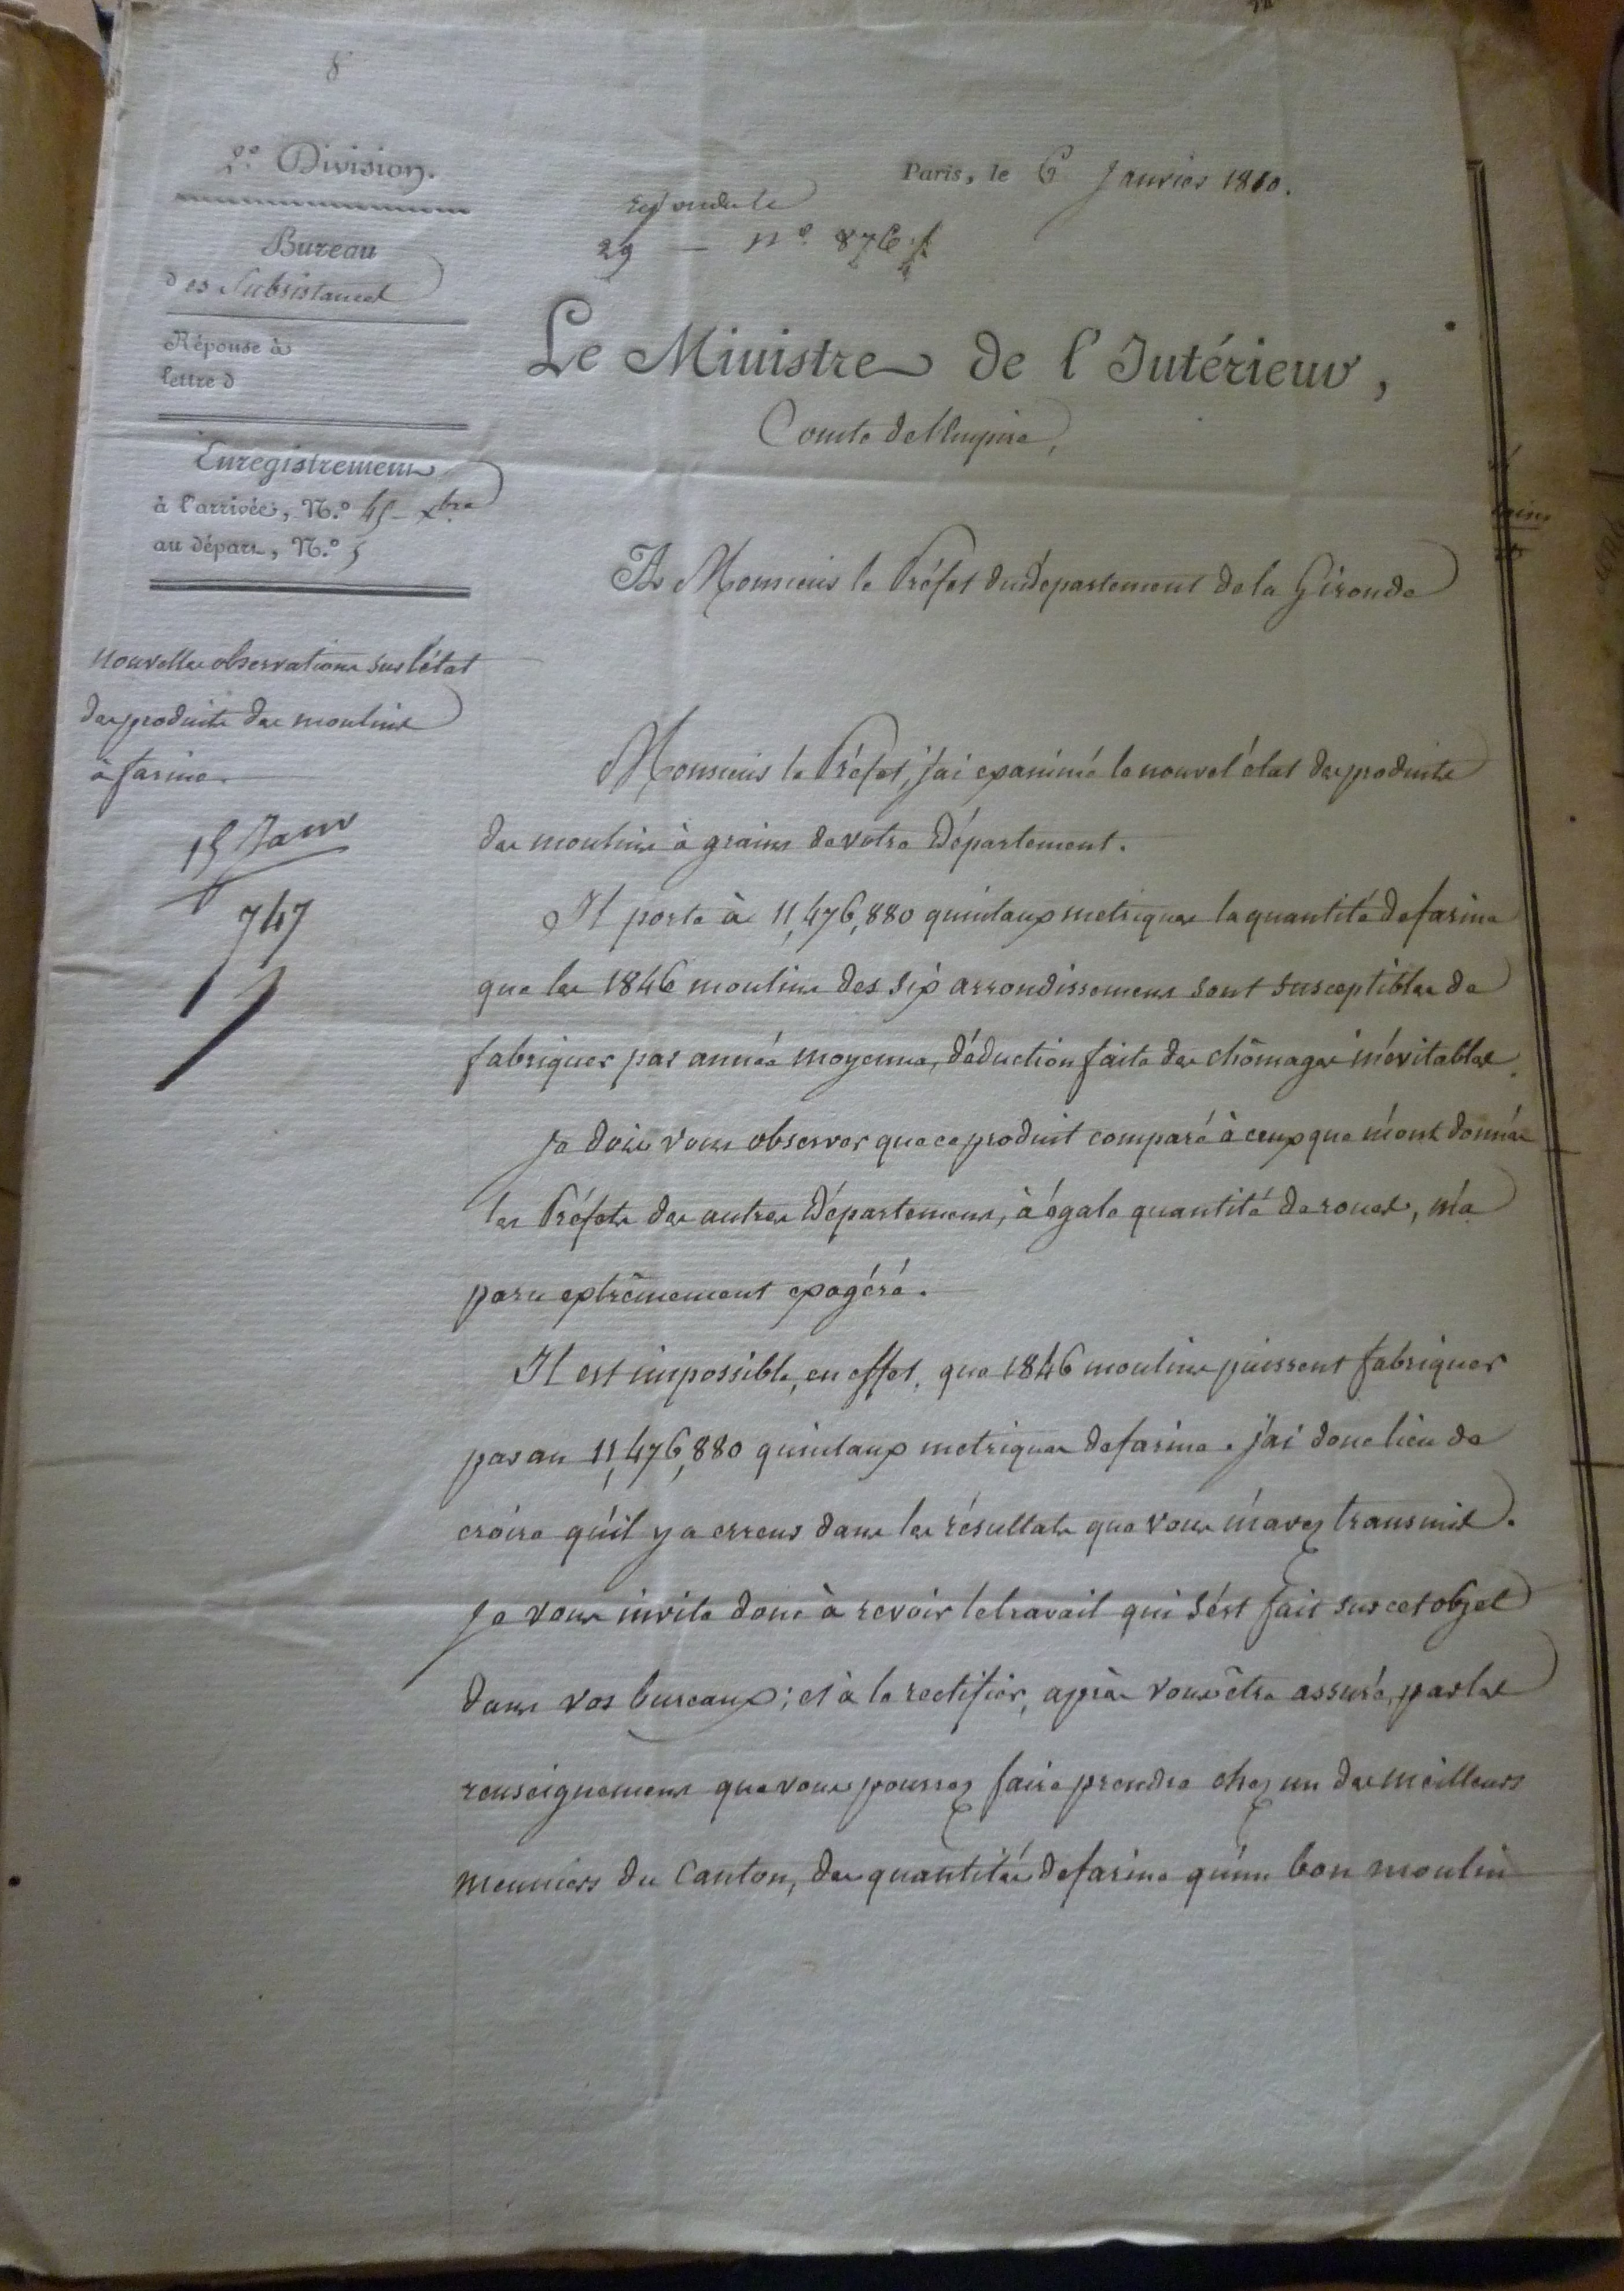 8
2.e Division.
Bureau
des Subsistances
Réponse à
lettre d
Enregistrement
à l'arrivée, N.o 45 - xbre
au départ, N.o 5
nouvelles observations sur l'état
des produits des moulins
à farine.
15 Janv
747
Paris, le 6 Janvier 1810.
Répondu le
29 — n.o 876
Le Ministre de l'Intérieur,
Comte de l'Empire,
A Monsieur le Préfet du Département de la Gironde
Monsieur le Préfet, j'ai examiné le nouvel état des produits
des moulins à grains de votre Département.
Il porte à 11,476,880 quintaux metriques la quantité de farine
que les 1846 moulins des six arrondissemens sont susceptibles de
fabriquer par année moyenne, déduction faite des chômages inévitables.
Je dois vous observer que ce produit comparé à ceux que m'ont donnés
les Préfets des autres Départemens, à égale quantité de roues, m'a
paru extrêmement exagéré.
Il est impossible, en effet, que 1846 moulins puissent fabriquer
par an 11,476,880 quintaux metriques de farine. j'ai donc lieu de
croire qu'il y a erreur dans les résultats que vous m'avez transmis.
Je vous invite donc à revoir le travail qui s'est fait sur cet objet
dans vos bureaux; et à le rectifier, après vous être assuré, par les
renseignemens que vous pourrez faire prendre chez un des meilleurs
meuniers du Canton, des quantités de farine qu'un bon moulin